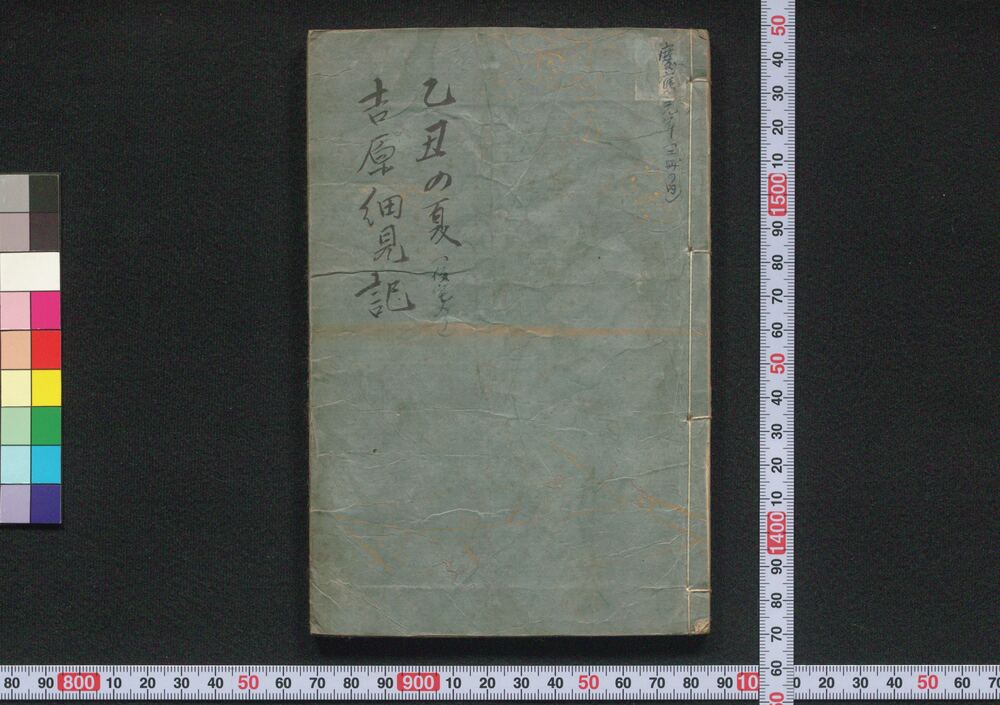 慶應元年
乙丑の夏
吉原細見記
50
40
30
20
10
1500
90
80
70
60
50
40
30
20
10
1400
90
80
70
60
50
80 90 800 10 20 30 40 50 60 70 80 90 900 10 20 30 40 50 60 70 80 90 10 0 20 30 40 50 60 70